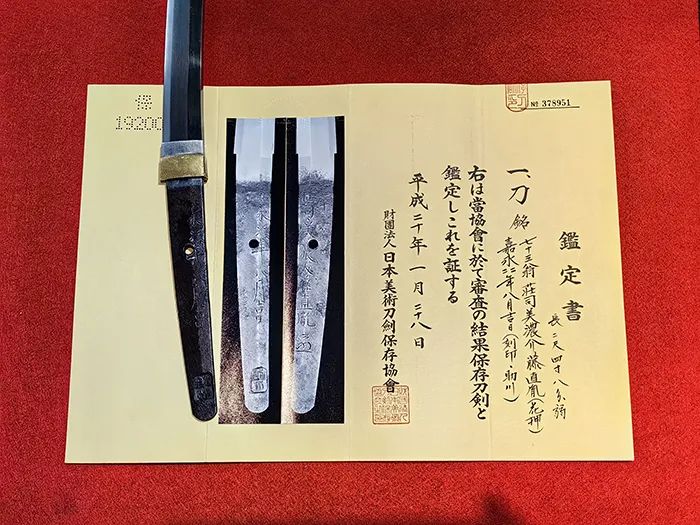 № 378951
鑑定書
長二尺四寸八分弱
一、刀 銘
七十三翁 荘司美濃介藤直胤(花押)
嘉永二二年八月吉日(刻印、助川)
右は當協會に於て審査の結果保存刀剣と
鑑定しこれを証する
平成二十年一月二十八日
財團法人 日本美術刀劍保存協會
保
19200